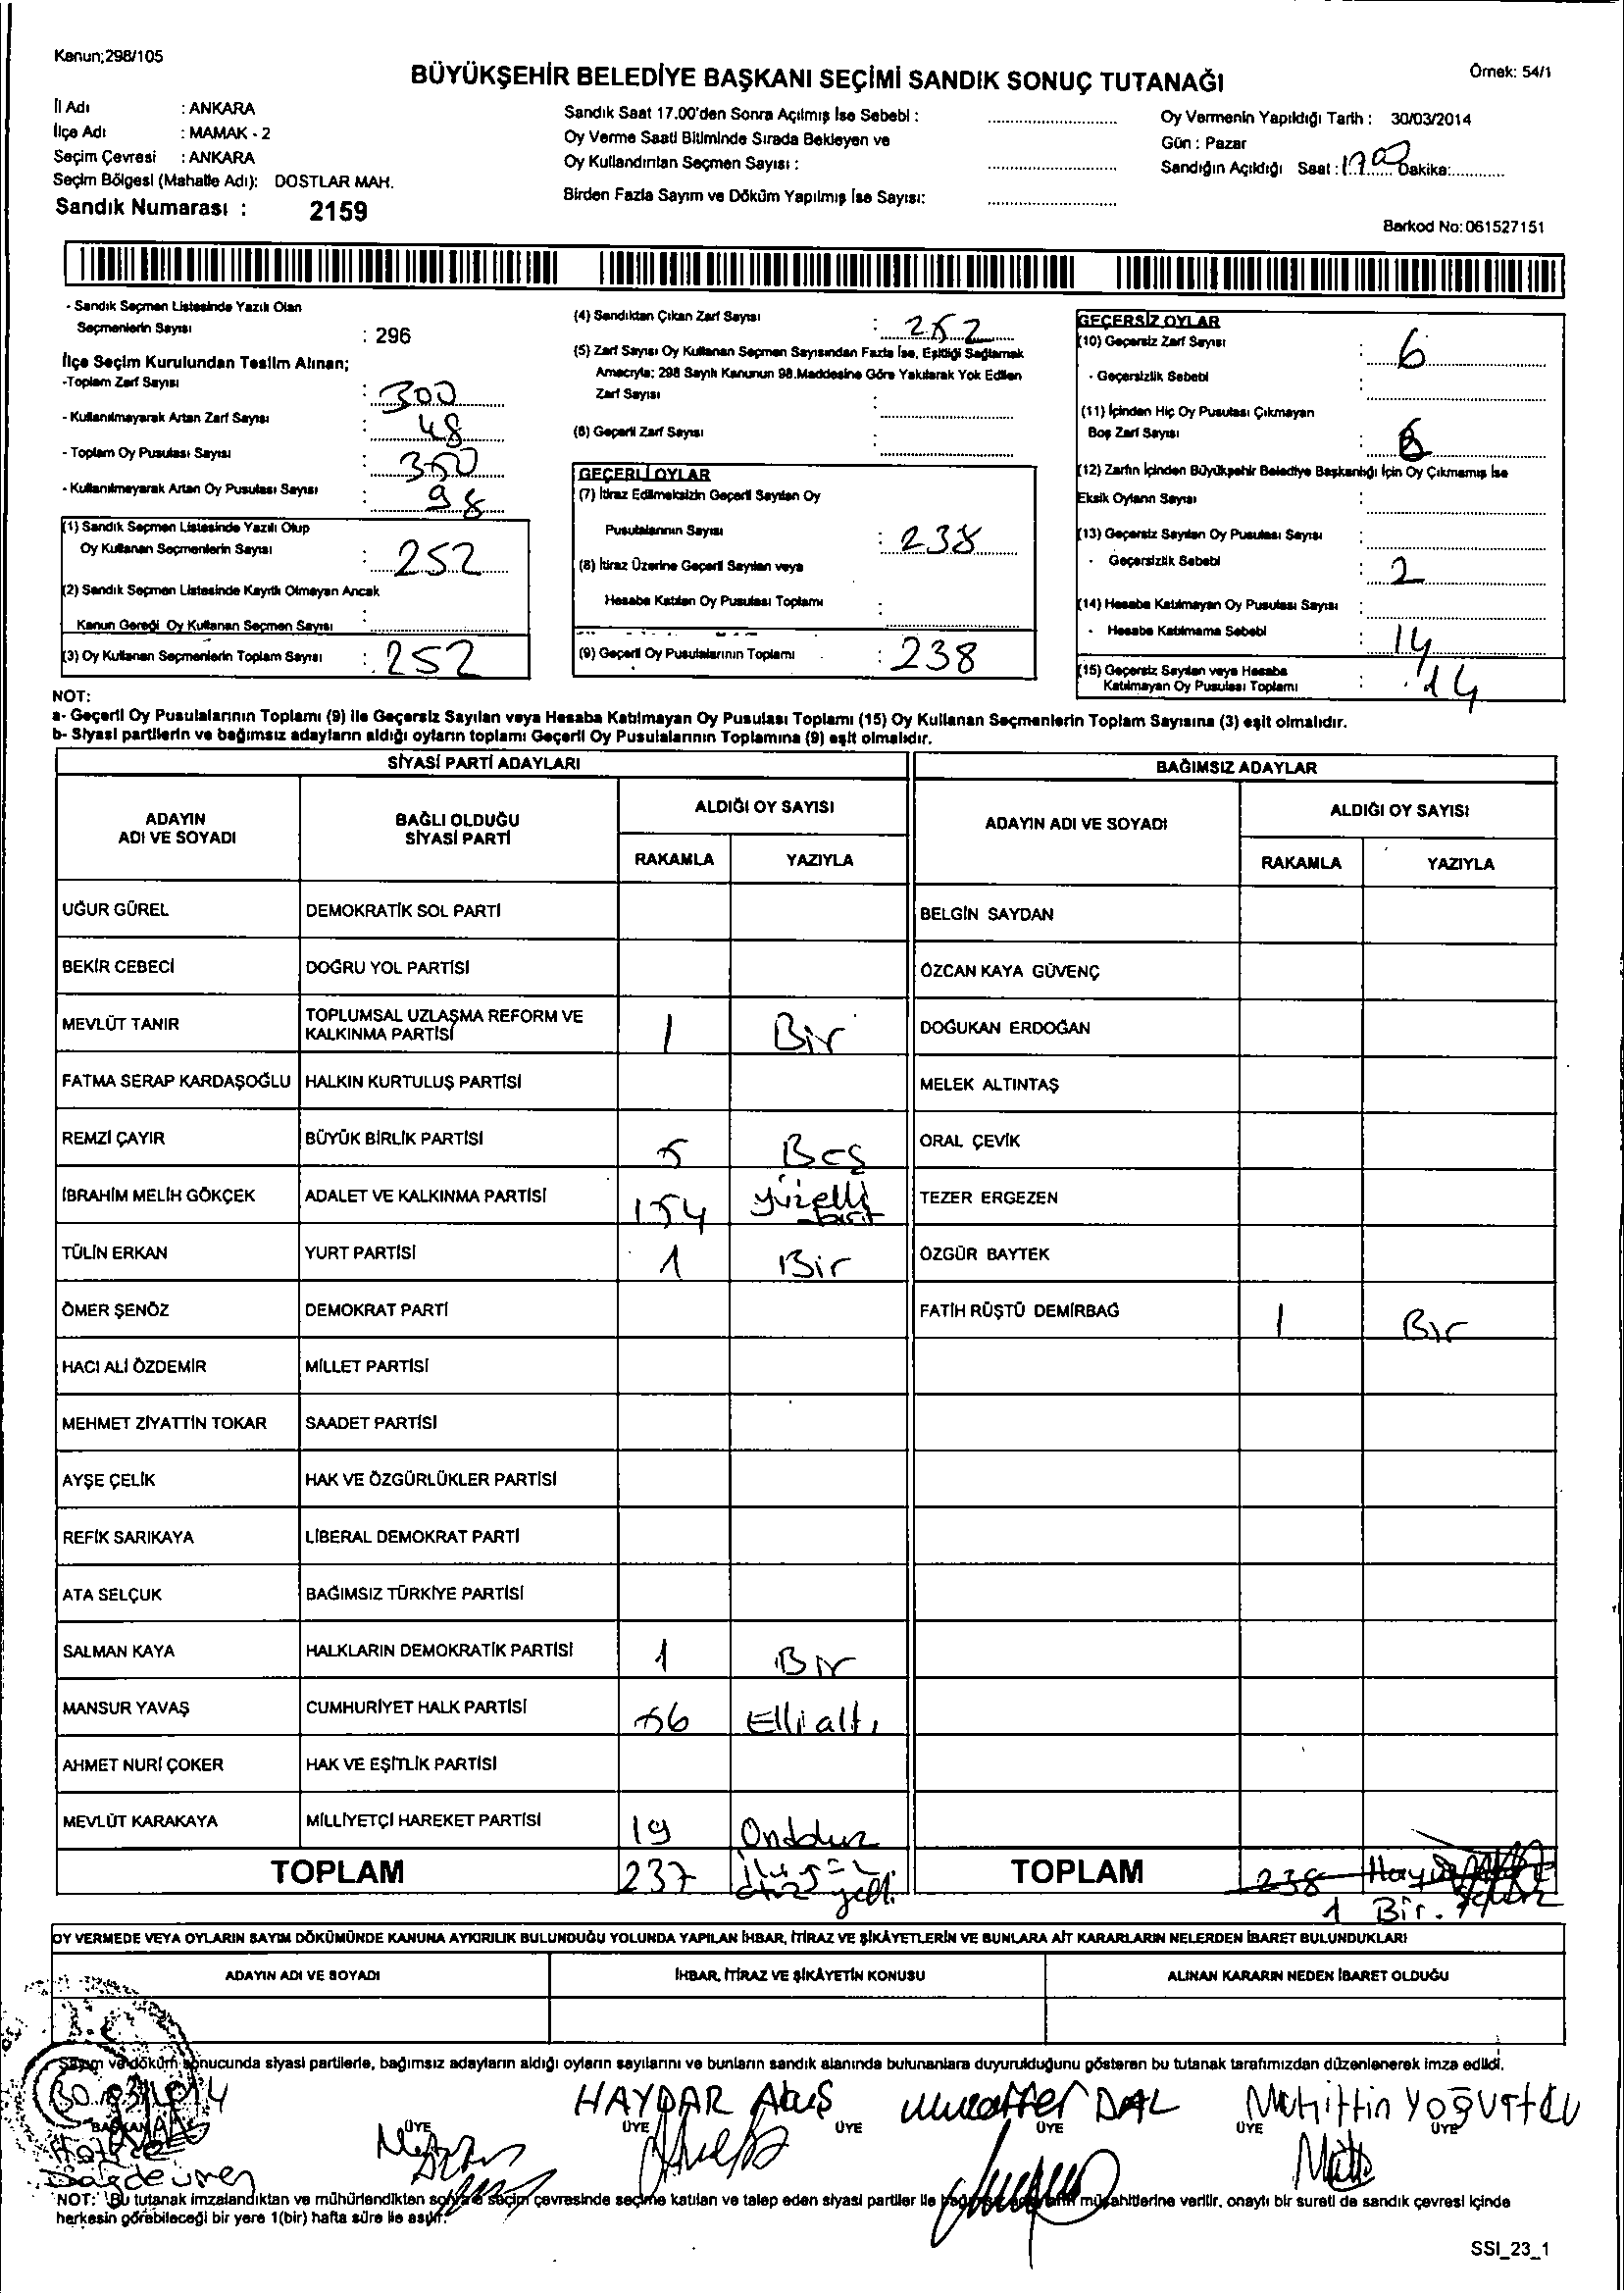 Kanun;298/105
BÜYÜKŞEHİR BELEDİYE BAŞKANI SEÇİMİ SANDIK SONUÇ TUTANAĞI
Örnek: 54/1
İl Adı : ANKARA
İlçe Adı : MAMAK - 2
Seçim Çevresi : ANKARA
Seçim Bölgesi (Mahalle Adı): DOSTLAR MAH.
Sandık Numarası : 2159
Sandık Saat 17.00'den Sonra Açılmış İse Sebebi :
Oy Verme Saati Bitiminde Sırada Bekleyen ve
Oy Kullandırılan Seçmen Sayısı :
Birden Fazla Sayım ve Döküm Yapılmış İse Sayısı:
Oy Vermenin Yapıldığı Tarih : 30/03/2014
Gün : Pazar
Sandığın Açıldığı Saat : 17.00 Dakika:
Barkod No: 061527151
- Sandık Seçmen Listesinde Yazılı Olan
Seçmenlerin Sayısı : 296
İlçe Seçim Kurulundan Teslim Alınan;
-Toplam Zarf Sayısı : 300
- Kullanılmayarak Artan Zarf Sayısı : 48
- Toplam Oy Pusulası Sayısı : 350
- Kullanılmayarak Artan Oy Pusulası Sayısı : 98
(1) Sandık Seçmen Listesinde Yazılı Olup
Oy Kullanan Seçmenlerin Sayısı : 252
(2) Sandık Seçmen Listesinde Kayıtlı Olmayan Ancak
Kanun Gereği Oy Kullanan Seçmen Sayısı :
(3) Oy Kullanan Seçmenlerin Toplam Sayısı : 252
(4) Sandıktan Çıkan Zarf Sayısı : 252
(5) Zarf Sayısı Oy Kullanan Seçmen Sayısından Fazla İse, Eşitliği Sağlamak
Amacıyla; 298 Sayılı Kanunun 98.Maddesine Göre Yakılarak Yok Edilen
Zarf Sayısı :
(6) Geçerli Zarf Sayısı :
GEÇERLİ OYLAR
(7) İtiraz Edilmeksizin Geçerli Sayılan Oy
Pusulalarının Sayısı : 238
(8) İtiraz Üzerine Geçerli Sayılan veya
Hesaba Katılan Oy Pusulası Toplamı :
(9) Geçerli Oy Pusulalarının Toplamı : 238
GEÇERSİZ OYLAR
(10) Geçersiz Zarf Sayısı : 6
- Geçersizlik Sebebi :
(11) İçinden Hiç Oy Pusulası Çıkmayan
Boş Zarf Sayısı : 6
(12) Zarfın İçinden Büyükşehir Belediye Başkanlığı İçin Oy Çıkmamış İse
Eksik Oyların Sayısı :
(13) Geçersiz Sayılan Oy Pusulası Sayısı :
- Geçersizlik Sebebi : 2
(14) Hesaba Katılmayan Oy Pusulası Sayısı :
- Hesaba Katılmama Sebebi : 14
(15) Geçersiz Sayılan veya Hesaba
Katılmayan Oy Pusulası Toplamı : 14
NOT:
a- Geçerli Oy Pusulalarının Toplamı (9) ile Geçersiz Sayılan veya Hesaba Katılmayan Oy Pusulası Toplamı (15) Oy Kullanan Seçmenlerin Toplam Sayısına (3) eşit olmalıdır.
b- Siyasi partilerin ve bağımsız adayların aldığı oyların toplamı Geçerli Oy Pusulalarının Toplamına (9) eşit olmalıdır.
SİYASİ PARTİ ADAYLARI BAĞIMSIZ ADAYLAR
ADAYIN ADI VE SOYADI BAĞLI OLDUĞU SİYASİ PARTİ ALDIĞI OY SAYISI ADAYIN ADI VE SOYADI ALDIĞI OY SAYISI
RAKAMLA YAZIYLA RAKAMLA YAZIYLA
UĞUR GÜREL DEMOKRATİK SOL PARTİ BELGİN SAYDAN
BEKİR CEBECİ DOĞRU YOL PARTİSİ ÖZCAN KAYA GÜVENÇ
MEVLÜT TANIR TOPLUMSAL UZLAŞMA REFORM VE KALKINMA PARTİSİ 1 Bir DOĞUKAN ERDOĞAN
FATMA SERAP KARDAŞOĞLU HALKIN KURTULUŞ PARTİSİ MELEK ALTINTAŞ
REMZİ ÇAYIR BÜYÜK BİRLİK PARTİSİ 5 Beş ORAL ÇEVİK
İBRAHİM MELİH GÖKÇEK ADALET VE KALKINMA PARTİSİ 154 yüzelli TEZER ERGEZEN
TÜLİN ERKAN YURT PARTİSİ 1 Bir ÖZGÜR BAYTEK
ÖMER ŞENÖZ DEMOKRAT PARTİ FATİH RÜŞTÜ DEMİRBAĞ 1 Bir
HACI ALİ ÖZDEMİR MİLLET PARTİSİ
MEHMET ZİYATTİN TOKAR SAADET PARTİSİ
AYŞE ÇELİK HAK VE ÖZGÜRLÜKLER PARTİSİ
REFİK SARIKAYA LİBERAL DEMOKRAT PARTİ
ATA SELÇUK BAĞIMSIZ TÜRKİYE PARTİSİ
SALMAN KAYA HALKLARIN DEMOKRATİK PARTİSİ 1 Bir
MANSUR YAVAŞ CUMHURİYET HALK PARTİSİ 56 Elli altı
AHMET NURİ ÇOKER HAK VE EŞİTLİK PARTİSİ
MEVLÜT KARAKAYA MİLLİYETÇİ HAREKET PARTİSİ 19 Ondokuz
TOPLAM 237 ikiyüz otuz yedi TOPLAM 238
1 Bir.
OY VERMEDE VEYA OYLARIN SAYIM DÖKÜMÜNDE KANUNA AYKIRILIK BULUNDUĞU YOLUNDA YAPILAN İHBAR, İTİRAZ VE ŞİKÂYETLERİN VE BUNLARA AİT KARARLARIN NELERDEN İBARET BULUNDUKLARI
ADAYIN ADI VE SOYADI İHBAR, İTİRAZ VE ŞİKÂYETİN KONUSU ALINAN KARARIN NEDEN İBARET OLDUĞU
Sayım ve döküm sonucunda siyasi partilerle, bağımsız adayların aldığı oyların sayılarını ve bunların sandık alanında bulunanlara duyurulduğunu gösteren bu tutanak tarafımızdan düzenlenerek imza edildi.
30.03.2014 HAYDAR Akış Muzaffer DAL Muhittin YOĞURTCU
BAŞKAN ÜYE ÜYE ÜYE ÜYE ÜYE ÜYE
Hatice
Dağdeviren
NOT: Bu tutanak imzalandıktan ve mühürlendikten sonra o seçim çevresinde seçime katılan ve talep eden siyasi partiler ile bağımsız müşahitlerine verilir, onaylı bir sureti de sandık çevresi içinde
herkesin görebileceği bir yere 1(bir) hafta süre ile asılır.
SSI_23_1